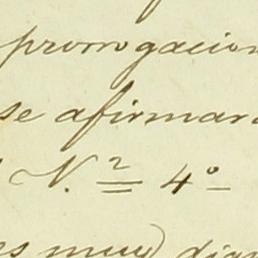 prorrogacion
se afirmar
N.º 4º
es muy dign